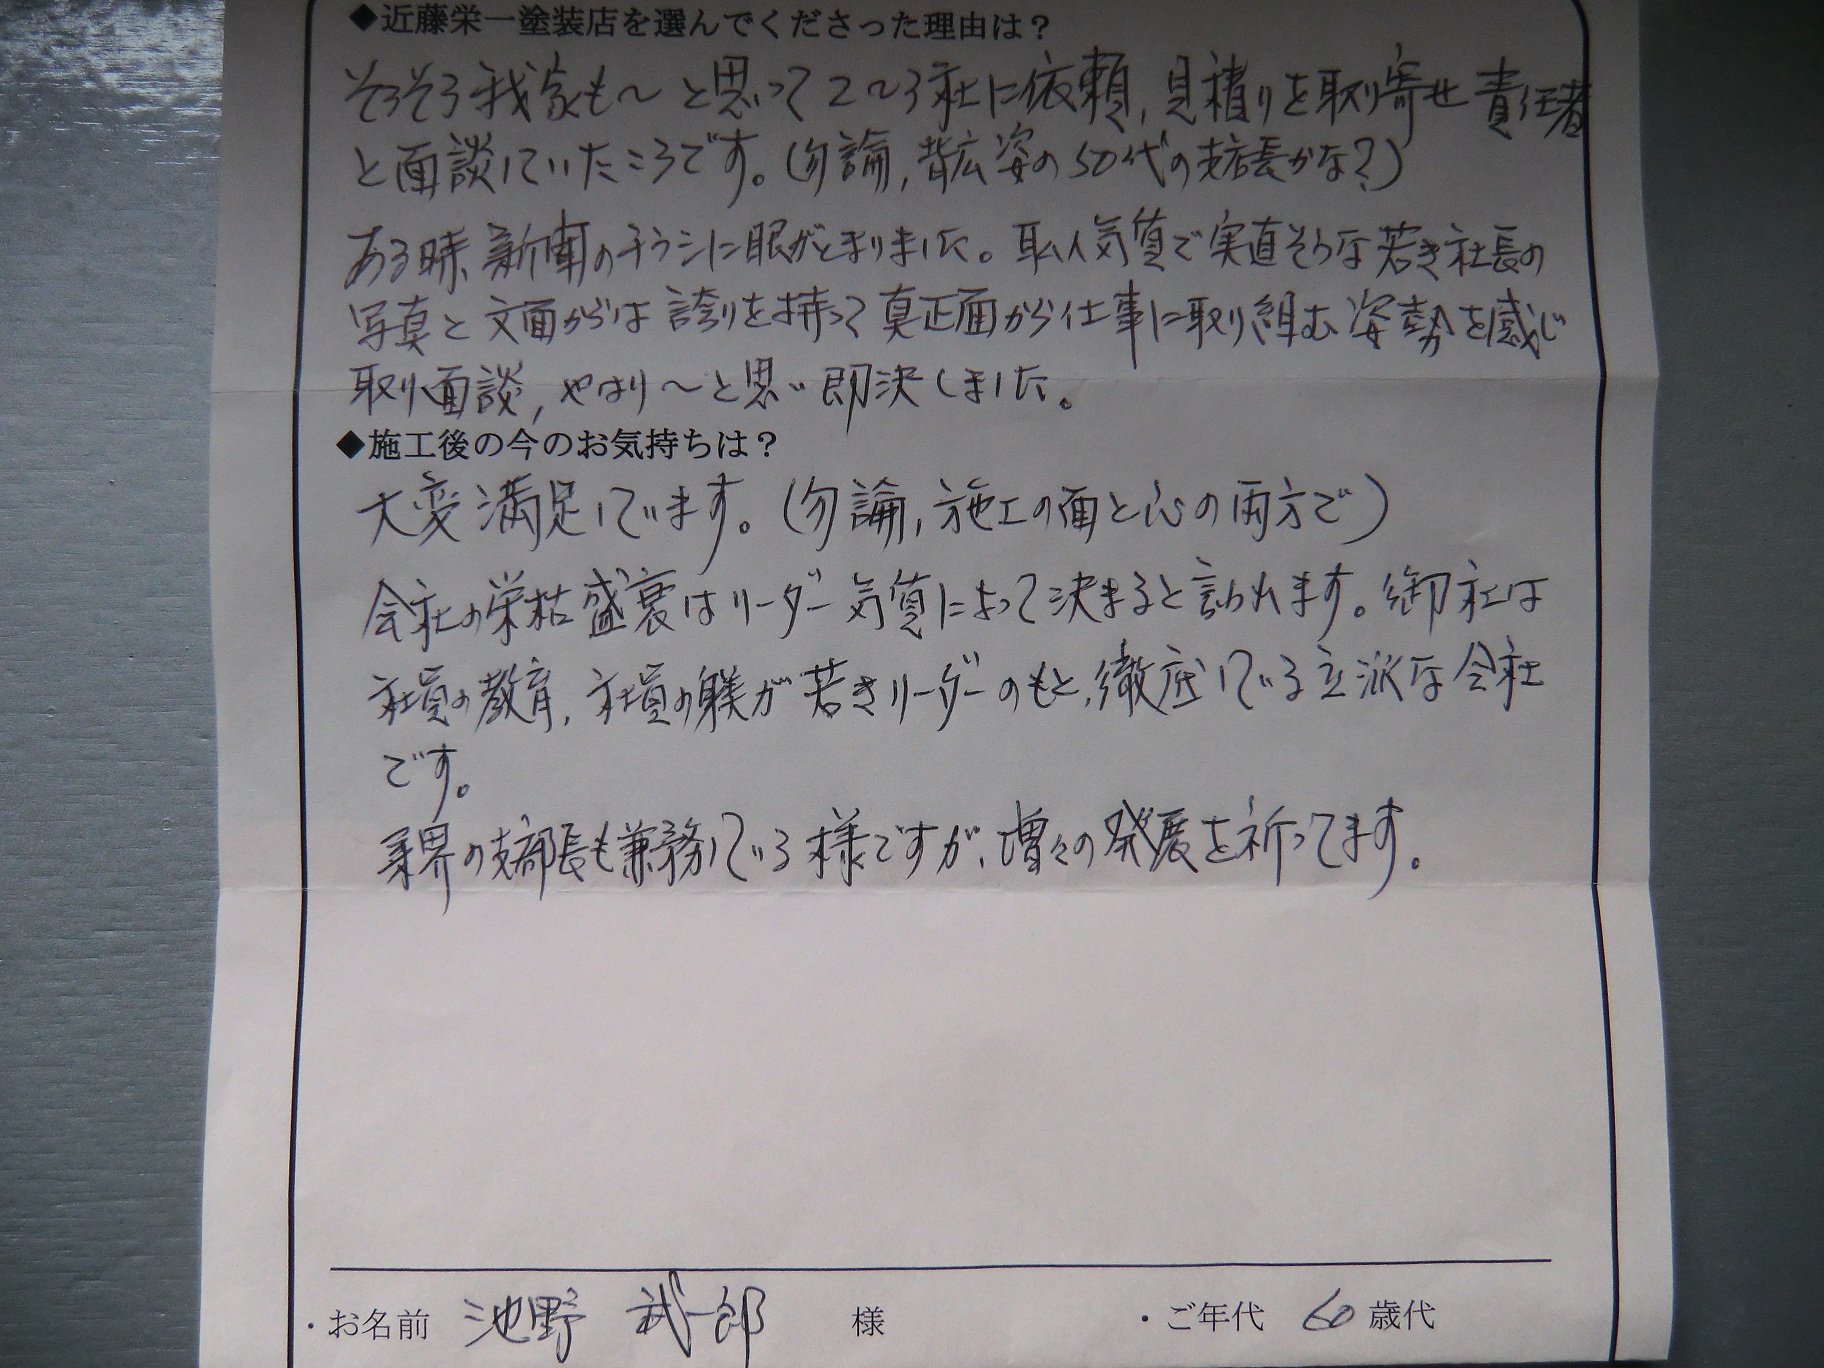 ◆近藤栄一塗装店を選んでくださった理由は？
そろそろ我家も～と思って2～3社に依頼,見積りを取り寄せ責任者
と面談していたころです。(勿論,背広姿の50代の支店長かな？)
ある時、新聞のチラシに眼がとまりました。職人気質で実直そうな若き社長の
写真と文面からは誇りを持って真正面から仕事に取り組む姿勢を感じ
取り面談,やはり～と思い即決しました。
◆施工後の今のお気持ちは？
大変満足しています。(勿論,施工の面と心の両方で)
会社の栄枯盛衰はリーダー気質によって決まると言われます。御社は
社員の教育,社員の躾が若きリーダーのもと,徹底している立派な会社
です。
業界の支部長も兼務している様ですが、増々の発展を祈ってます。
・お名前 池野 武一郎 様 ・ご年代 60歳代